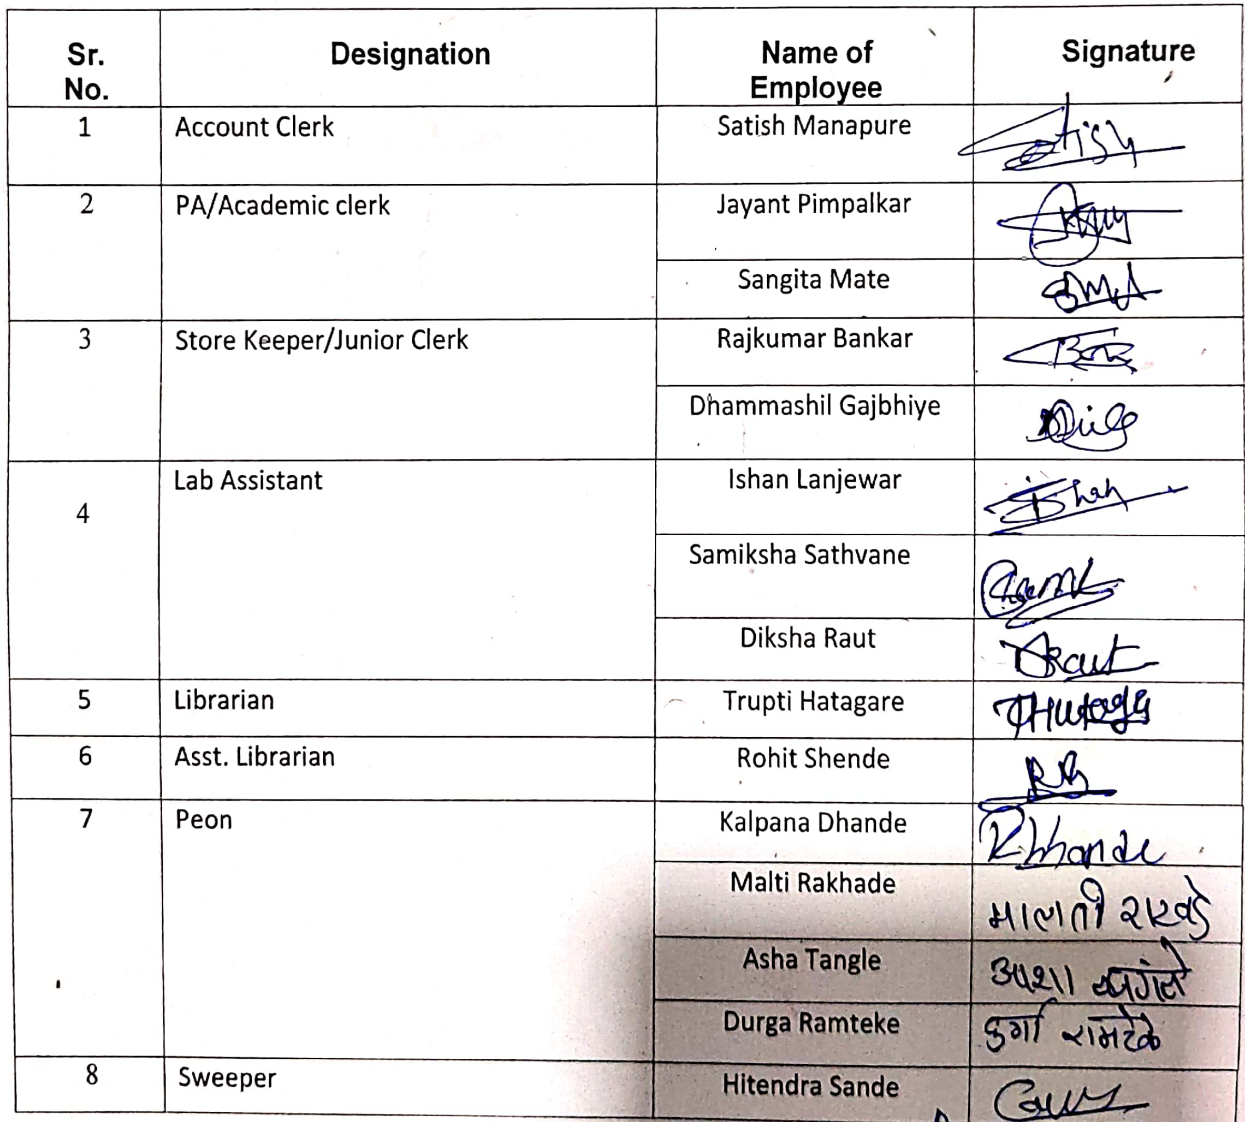 Sr. No. Designation Name of Employee Signature
1 Account Clerk Satish Manapure Satish
2 PA/Academic clerk Jayant Pimpalkar
Sangita Mate
3 Store Keeper/Junior Clerk Rajkumar Bankar
Dhammashil Gajbhiye
4 Lab Assistant Ishan Lanjewar Ishan
Samiksha Sathvane
Diksha Raut DRaut
5 Librarian Trupti Hatagare
6 Asst. Librarian Rohit Shende
7 Peon Kalpana Dhande
Malti Rakhade मालती रखडे
Asha Tangle आशा
Durga Ramteke दुर्गा रामटेके
8 Sweeper Hitendra Sande